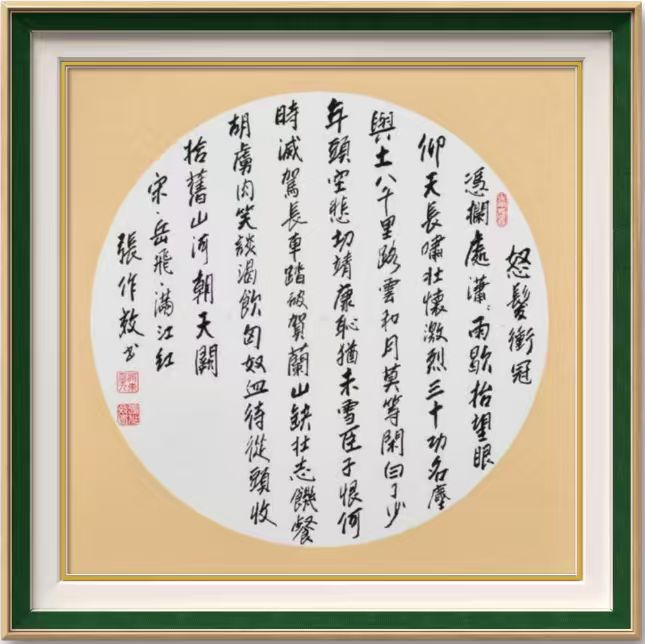 怒髮衝冠
憑欄處瀟〻雨歇抬望眼
仰天長嘯壯懷激烈三十功名塵
與土八千里路雲和月莫等閑白了少
年頭空悲切靖康恥猶未雪臣子恨何
時滅駕長車踏破賀蘭山缺壯志饑餐
胡虜肉笑談渴飲匈奴血待從頭收
拾舊山河朝天闕
宋·岳飛·滿江红
張作书